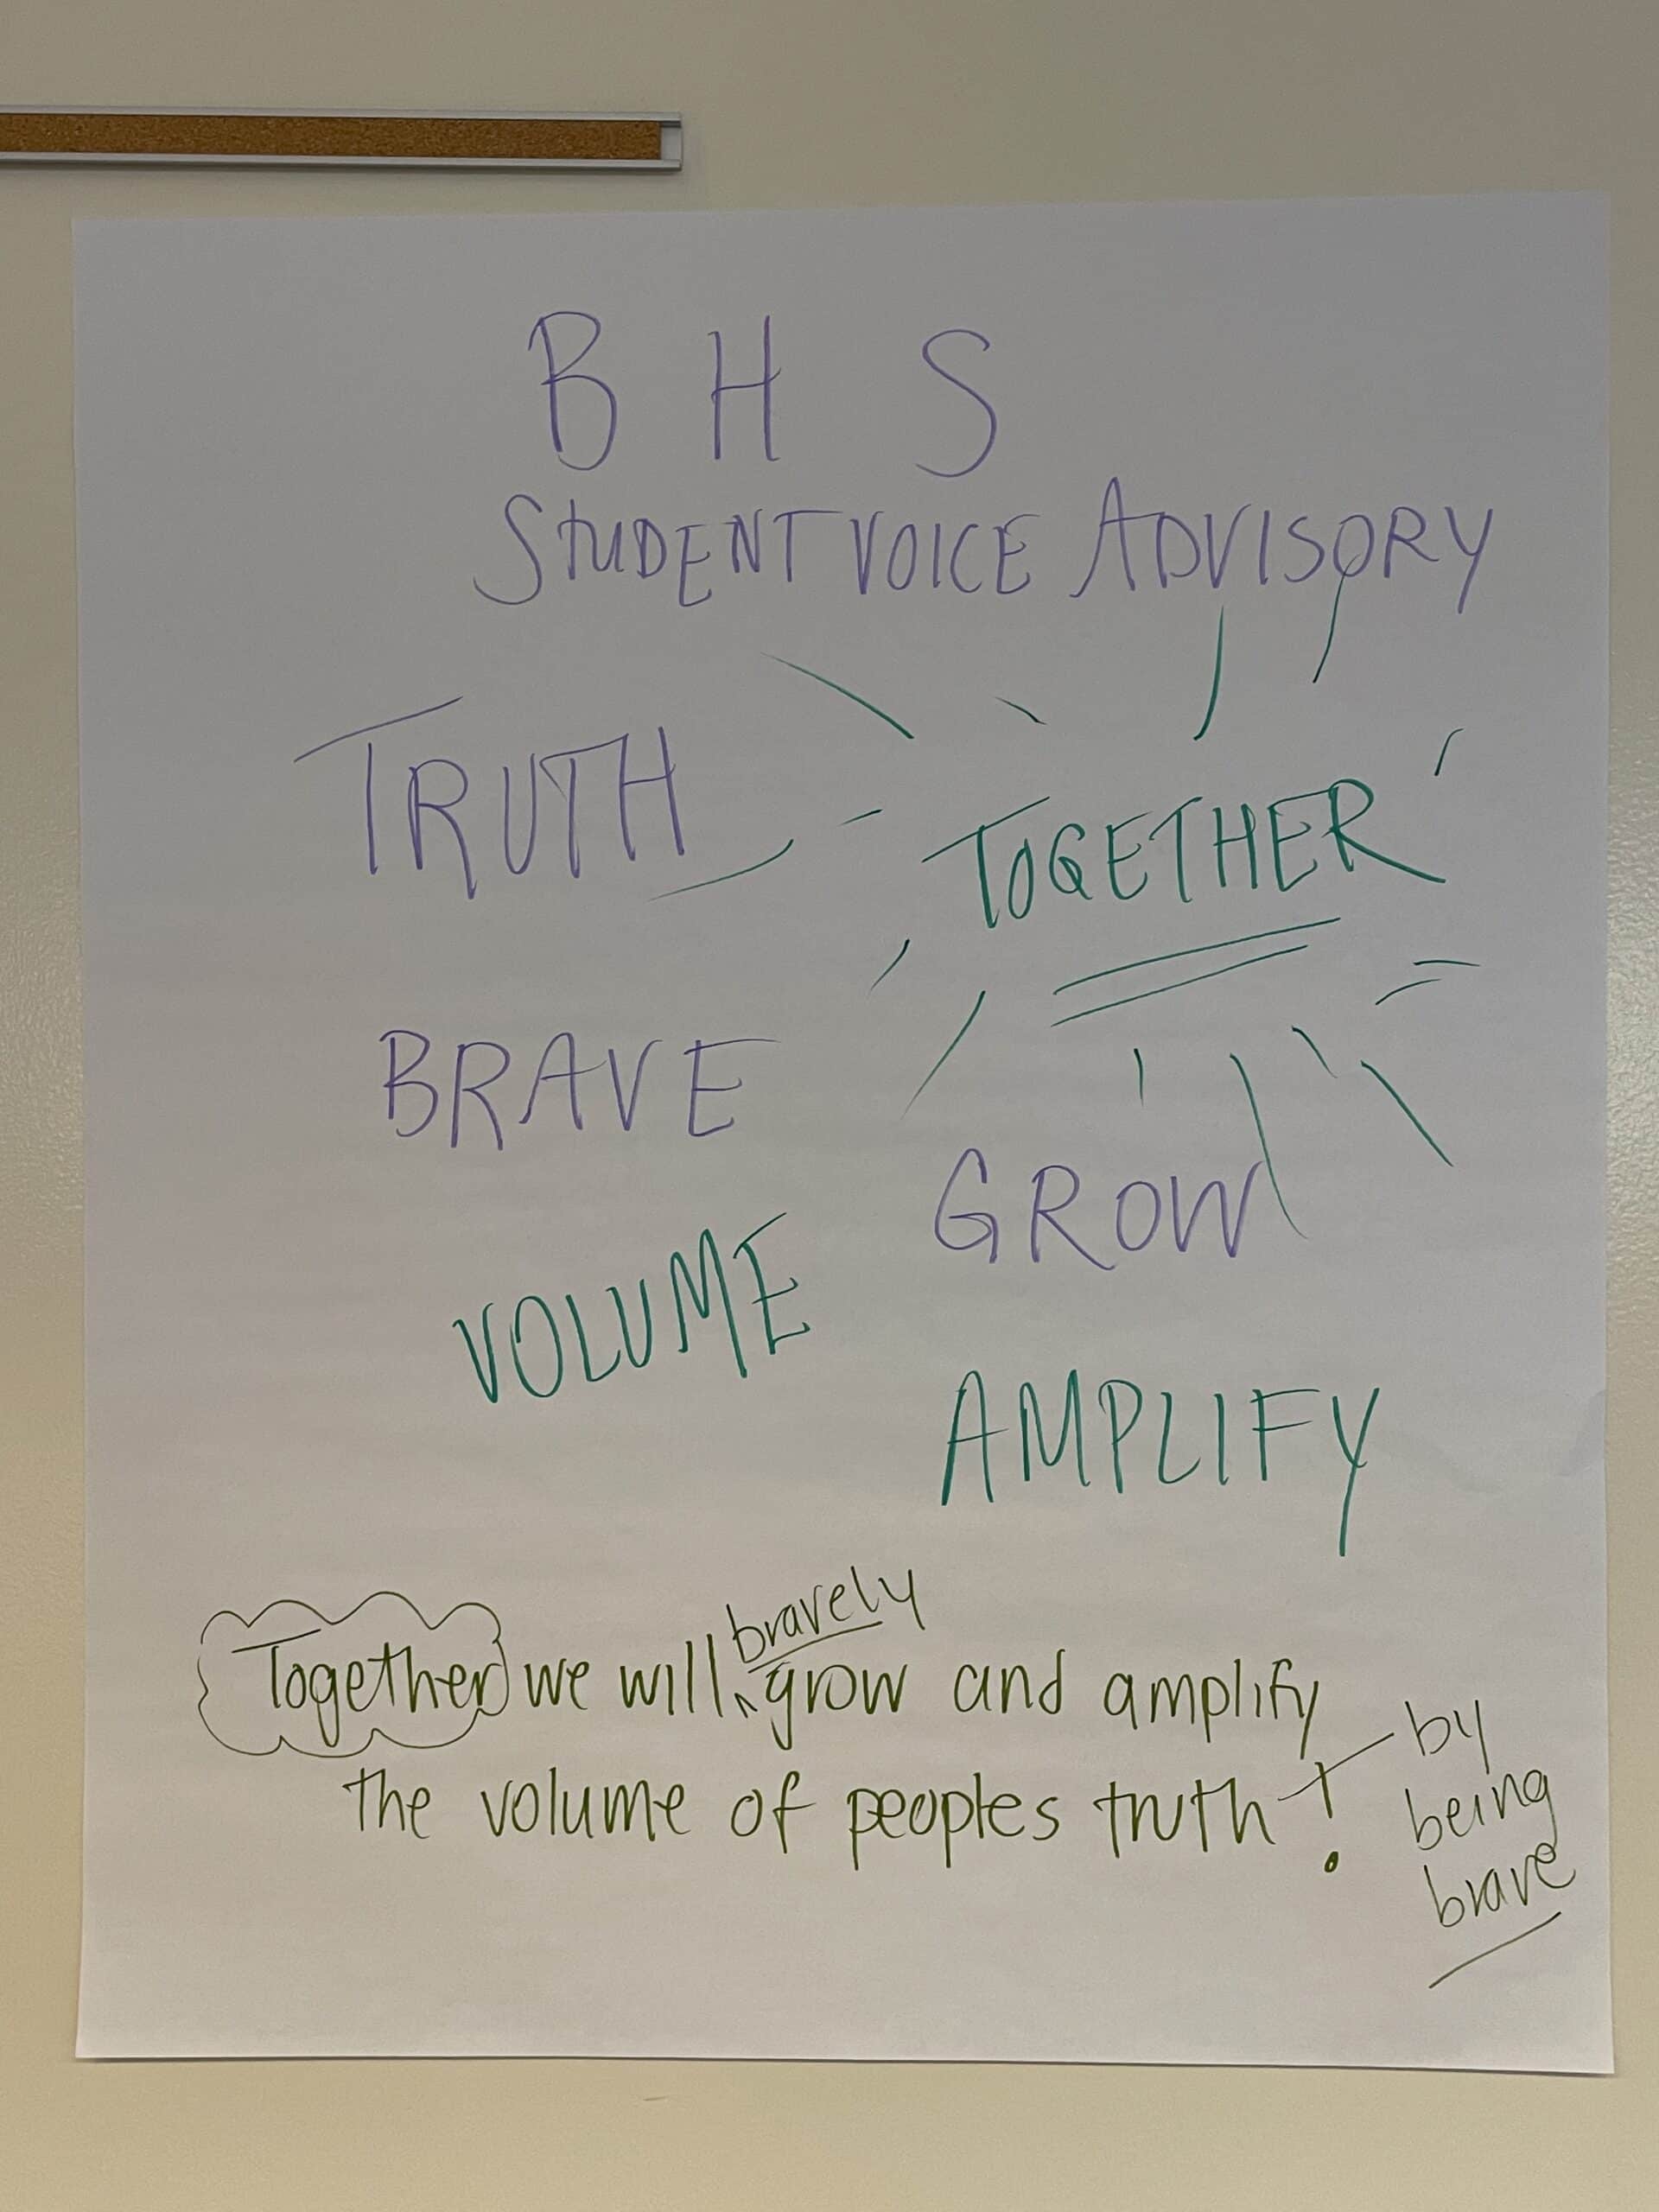 B H S
STUDENT VOICE ADVISORY
TRUTH
TOGETHER
BRAVE
GROW
VOLUME
AMPLIFY
bravely
Together we will grow and amplify
the volume of peoples truth!
by
being
brave